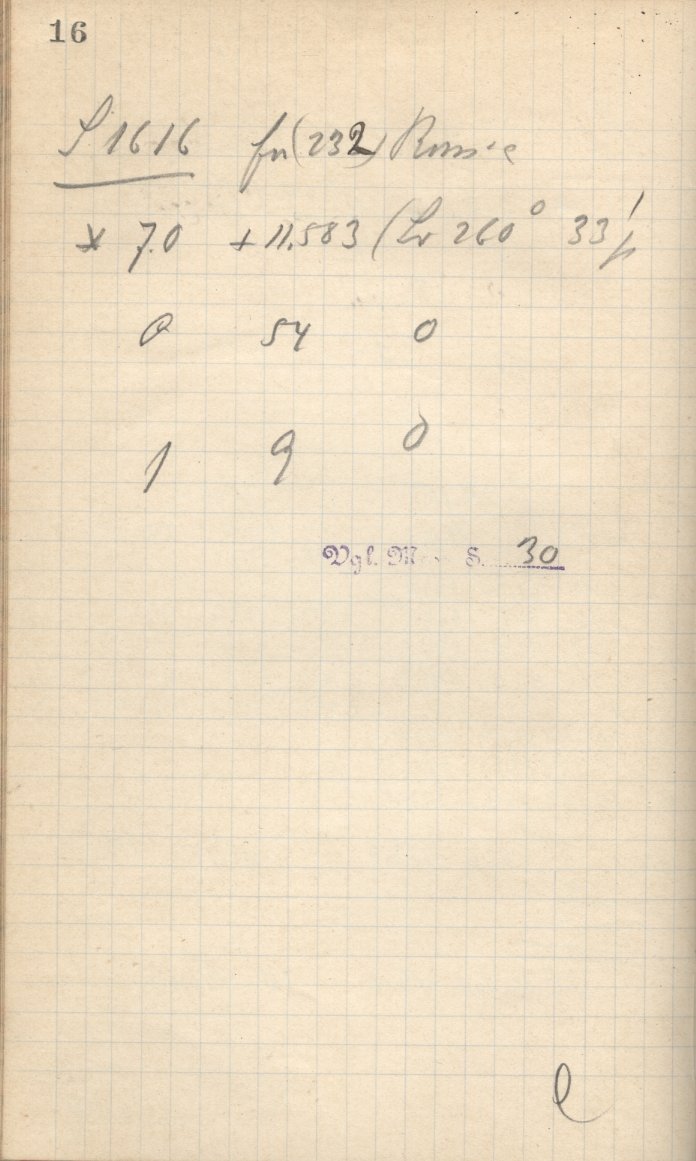 16
S 1616 für (232) Russia
* 7.0 + 11.583 (Lr 260° 33'
0 54 0
1 9 0
Vgl. S. 30
e